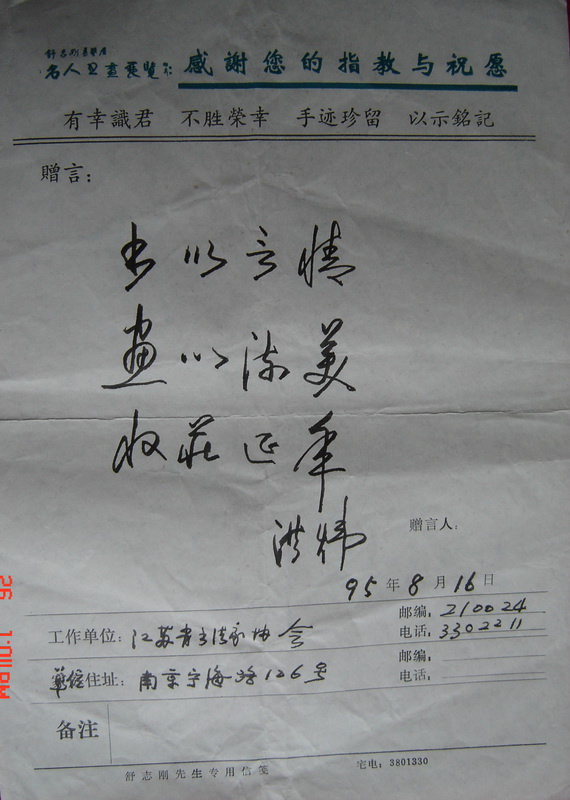 感謝您的指教与祝愿
名人书画展览
有幸識君 不胜榮幸 手迹珍留 以示銘記
贈言：
书以言情
画以 美
收 延年
赠言人：
洪炜
95年8月16日
邮编：210024
工作单位：江苏 书法家协会
电话：3302211
邮编：
住址：南京宁海路126号
电话：
备注
舒志刚先生专用信笺
宅电：3801330